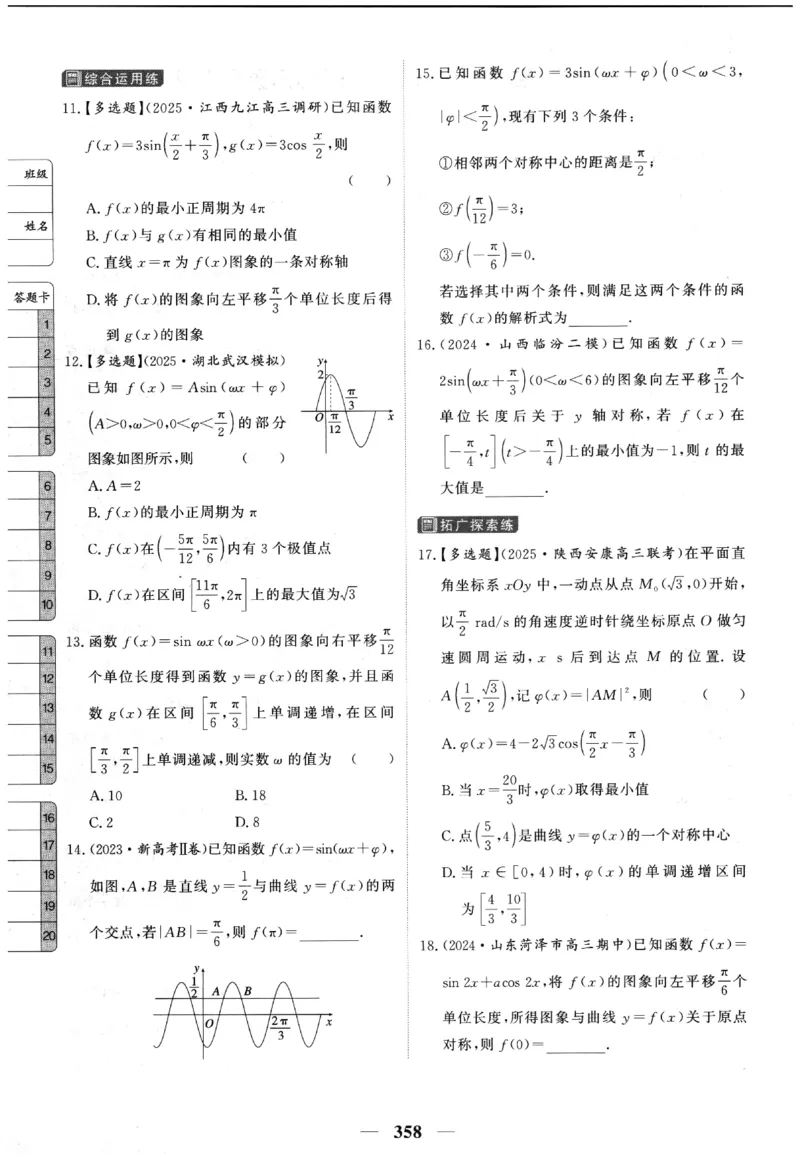 综合运用练
11.【多选题】(2025·江西九江高三调研)已知函数
f(x)=3sin(x/2+π/3),g(x)=3cos x/2,则
( )
A. f(x)的最小正周期为4π
B. f(x)与g(x)有相同的最小值
C. 直线x=π为f(x)图象的一条对称轴
D. 将f(x)的图象向左平移π/3个单位长度后得
到g(x)的图象
12.【多选题】(2025·湖北武汉模拟)
已知 f(x)=Asin(ωx+φ)
(A>0,ω>0,0<φ<π/2)的部分
图象如图所示,则 ( )
y
2
π/3
O
π/12
x
A. A=2
B. f(x)的最小正周期为π
C. f(x)在(-5π/12,5π/6)内有3个极值点
D. f(x)在区间[11π/6,2π]上的最大值为√3
13. 函数f(x)=sin ωx(ω>0)的图象向右平移π/12
个单位长度得到函数y=g(x)的图象,并且函
数g(x)在区间[π/6,π/3]上单调递增,在区间
[π/3,π/2]上单调递减,则实数ω的值为 ( )
A. 10 B. 18
C. 2 D. 8
14. (2023·新高考Ⅱ卷)已知函数f(x)=sin(ωx+φ),
如图,A,B是直线y=1/2与曲线y=f(x)的两
个交点,若|AB|=π/6,则f(π)=________.
y
1/2
A
B
O
2π/3
x
15. 已知函数 f(x)=3sin(ωx+φ)(0<ω<3,
|φ|<π/2),现有下列3个条件:
①相邻两个对称中心的距离是π/2;
②f(π/12)=3;
③f(-π/6)=0.
若选择其中两个条件,则满足这两个条件的函
数f(x)的解析式为________.
16. (2024·山西临汾二模)已知函数 f(x)=
2sin(ωx+π/3)(0<ω<6)的图象向左平移π/12个
单位长度后关于y轴对称,若f(x)在
[-π/4,t](t>-π/4)上的最小值为-1,则t的最
大值是________.
拓广探索练
17.【多选题】(2025·陕西安康高三联考)在平面直
角坐标系xOy中,一动点从点M₀(√3,0)开始,
以π/2 rad/s的角速度逆时针绕坐标原点O做匀
速圆周运动,x s后到达点M的位置. 设
A(1/2,√3/2),记φ(x)=|AM|²,则 ( )
A. φ(x)=4-2√3cos(π/2x-π/3)
B. 当x=20/3时,φ(x)取得最小值
C. 点(5/3,4)是曲线y=φ(x)的一个对称中心
D. 当x∈[0,4)时,φ(x)的单调递增区间
为[4/3,10/3]
18. (2024·山东菏泽市高三期中)已知函数f(x)=
sin 2x+acos 2x,将f(x)的图象向左平移π/6个
单位长度,所得图象与曲线y=f(x)关于原点
对称,则f(0)=________.
班级
姓名
答题卡
1
2
3
4
5
6
7
8
9
10
11
12
13
14
15
16
17
18
19
20
— 358 —